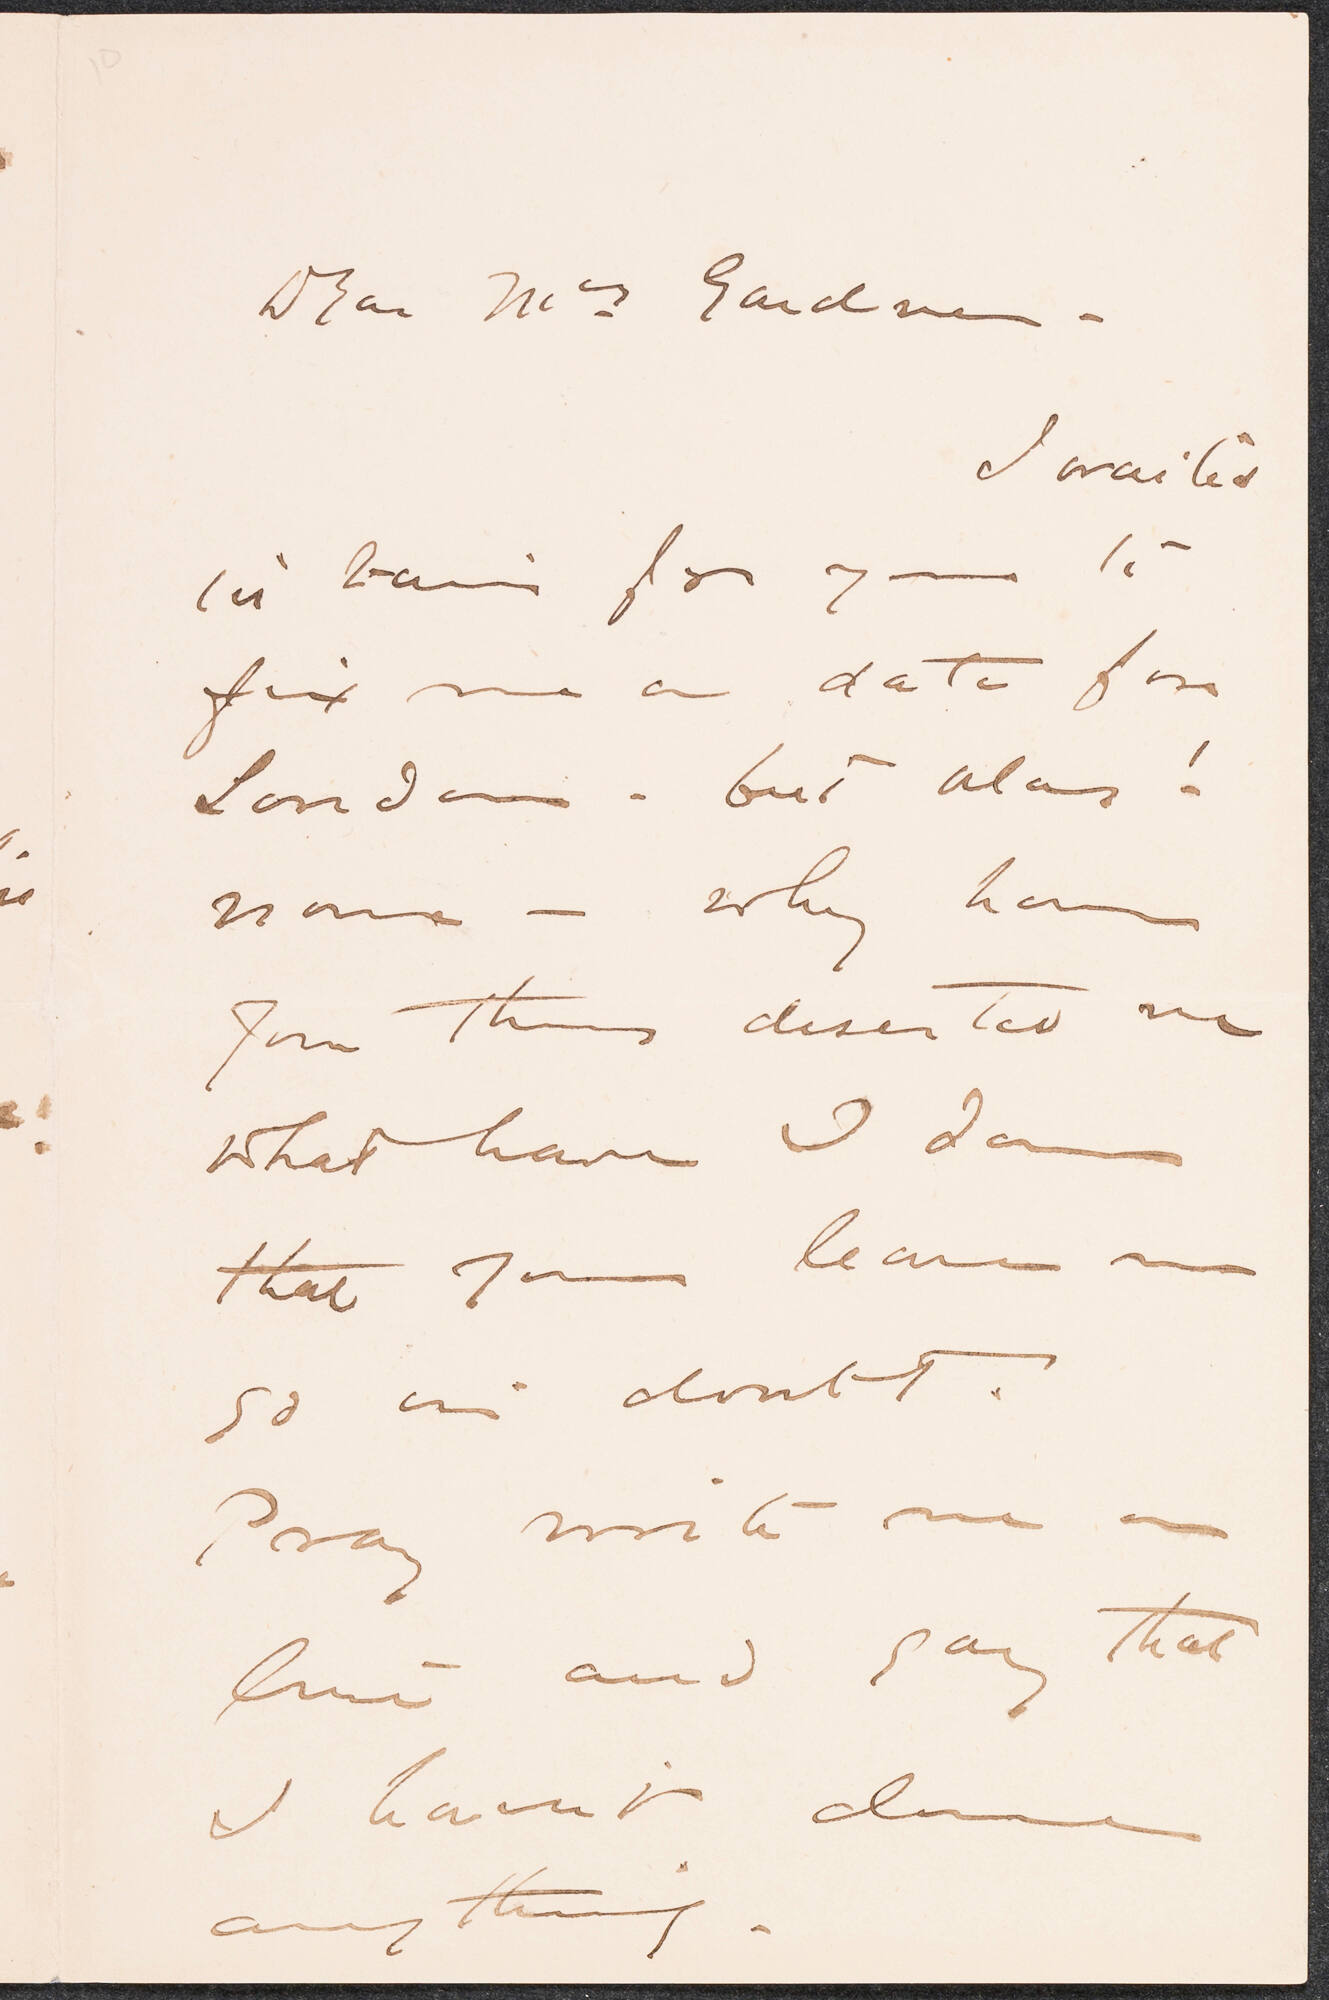 Dear Mrs Gardner -
I waited
in vain for you to
fix me a date for
London - but alas!
none - why have
you thus deserted me
what have I done
that you leave me
so in doubt?
Pray write me a
line and say that
I haven't done
anything.